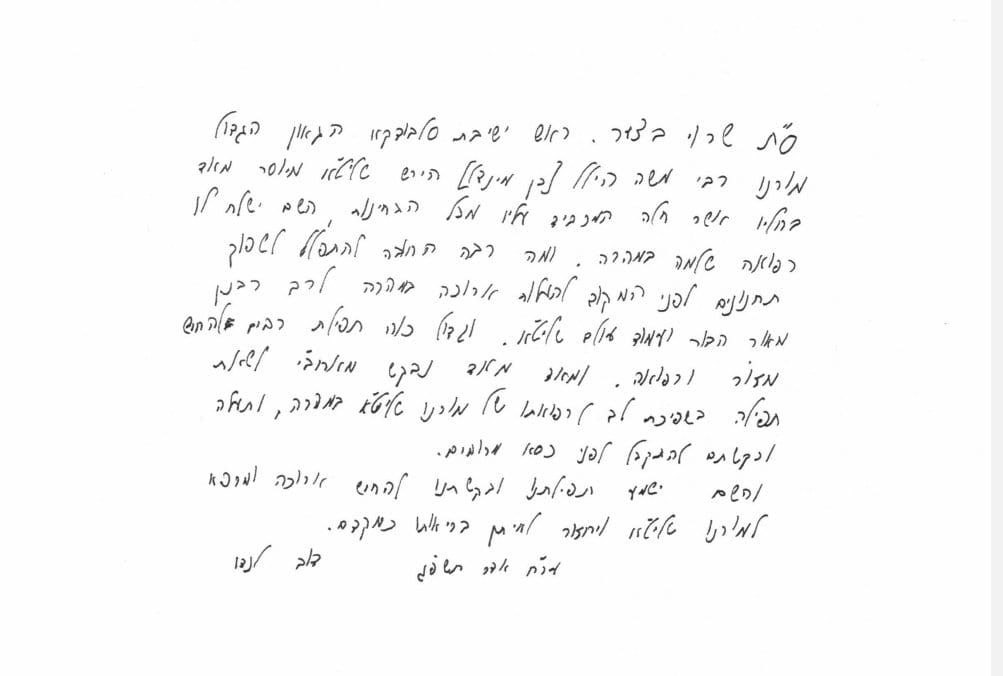 ס״ת שרוי בצער. ראש ישיבת סלבודקא הגאון הגדול
מורנו רבי משה הילל [בן מינדל] הירש שליט״א מיוסר מאד
בחליו אשר חלה המכביד עליו מכל הבחינות, השם ישלח לו
רפואה שלמה במהרה. ומה רבה החובה להתפלל לשפוך
תחנונים לפני המקום להעלות ארוכה במהרה לרב רבנן
מאור הדור ועמוד עולם שליט״א. וגדול כוח תפילת רבים להחיש
מזור ורפואה. ומאד מאוד נבקש מאחב״י לשאת
תפילה בשפיכת לב לרפואתו של מורנו שליט״א במהרה, ותעלה
ובקשתם להתקבל לפני כסא מרומים.
והשם ישמע תפילתנו ובקשתנו להחיש ארוכה ומרפא
למורנו שליט״א ויחזור לאיתן בריאותו כמקדם.
ער״ח אדר תשפ״ג דוב לנדו